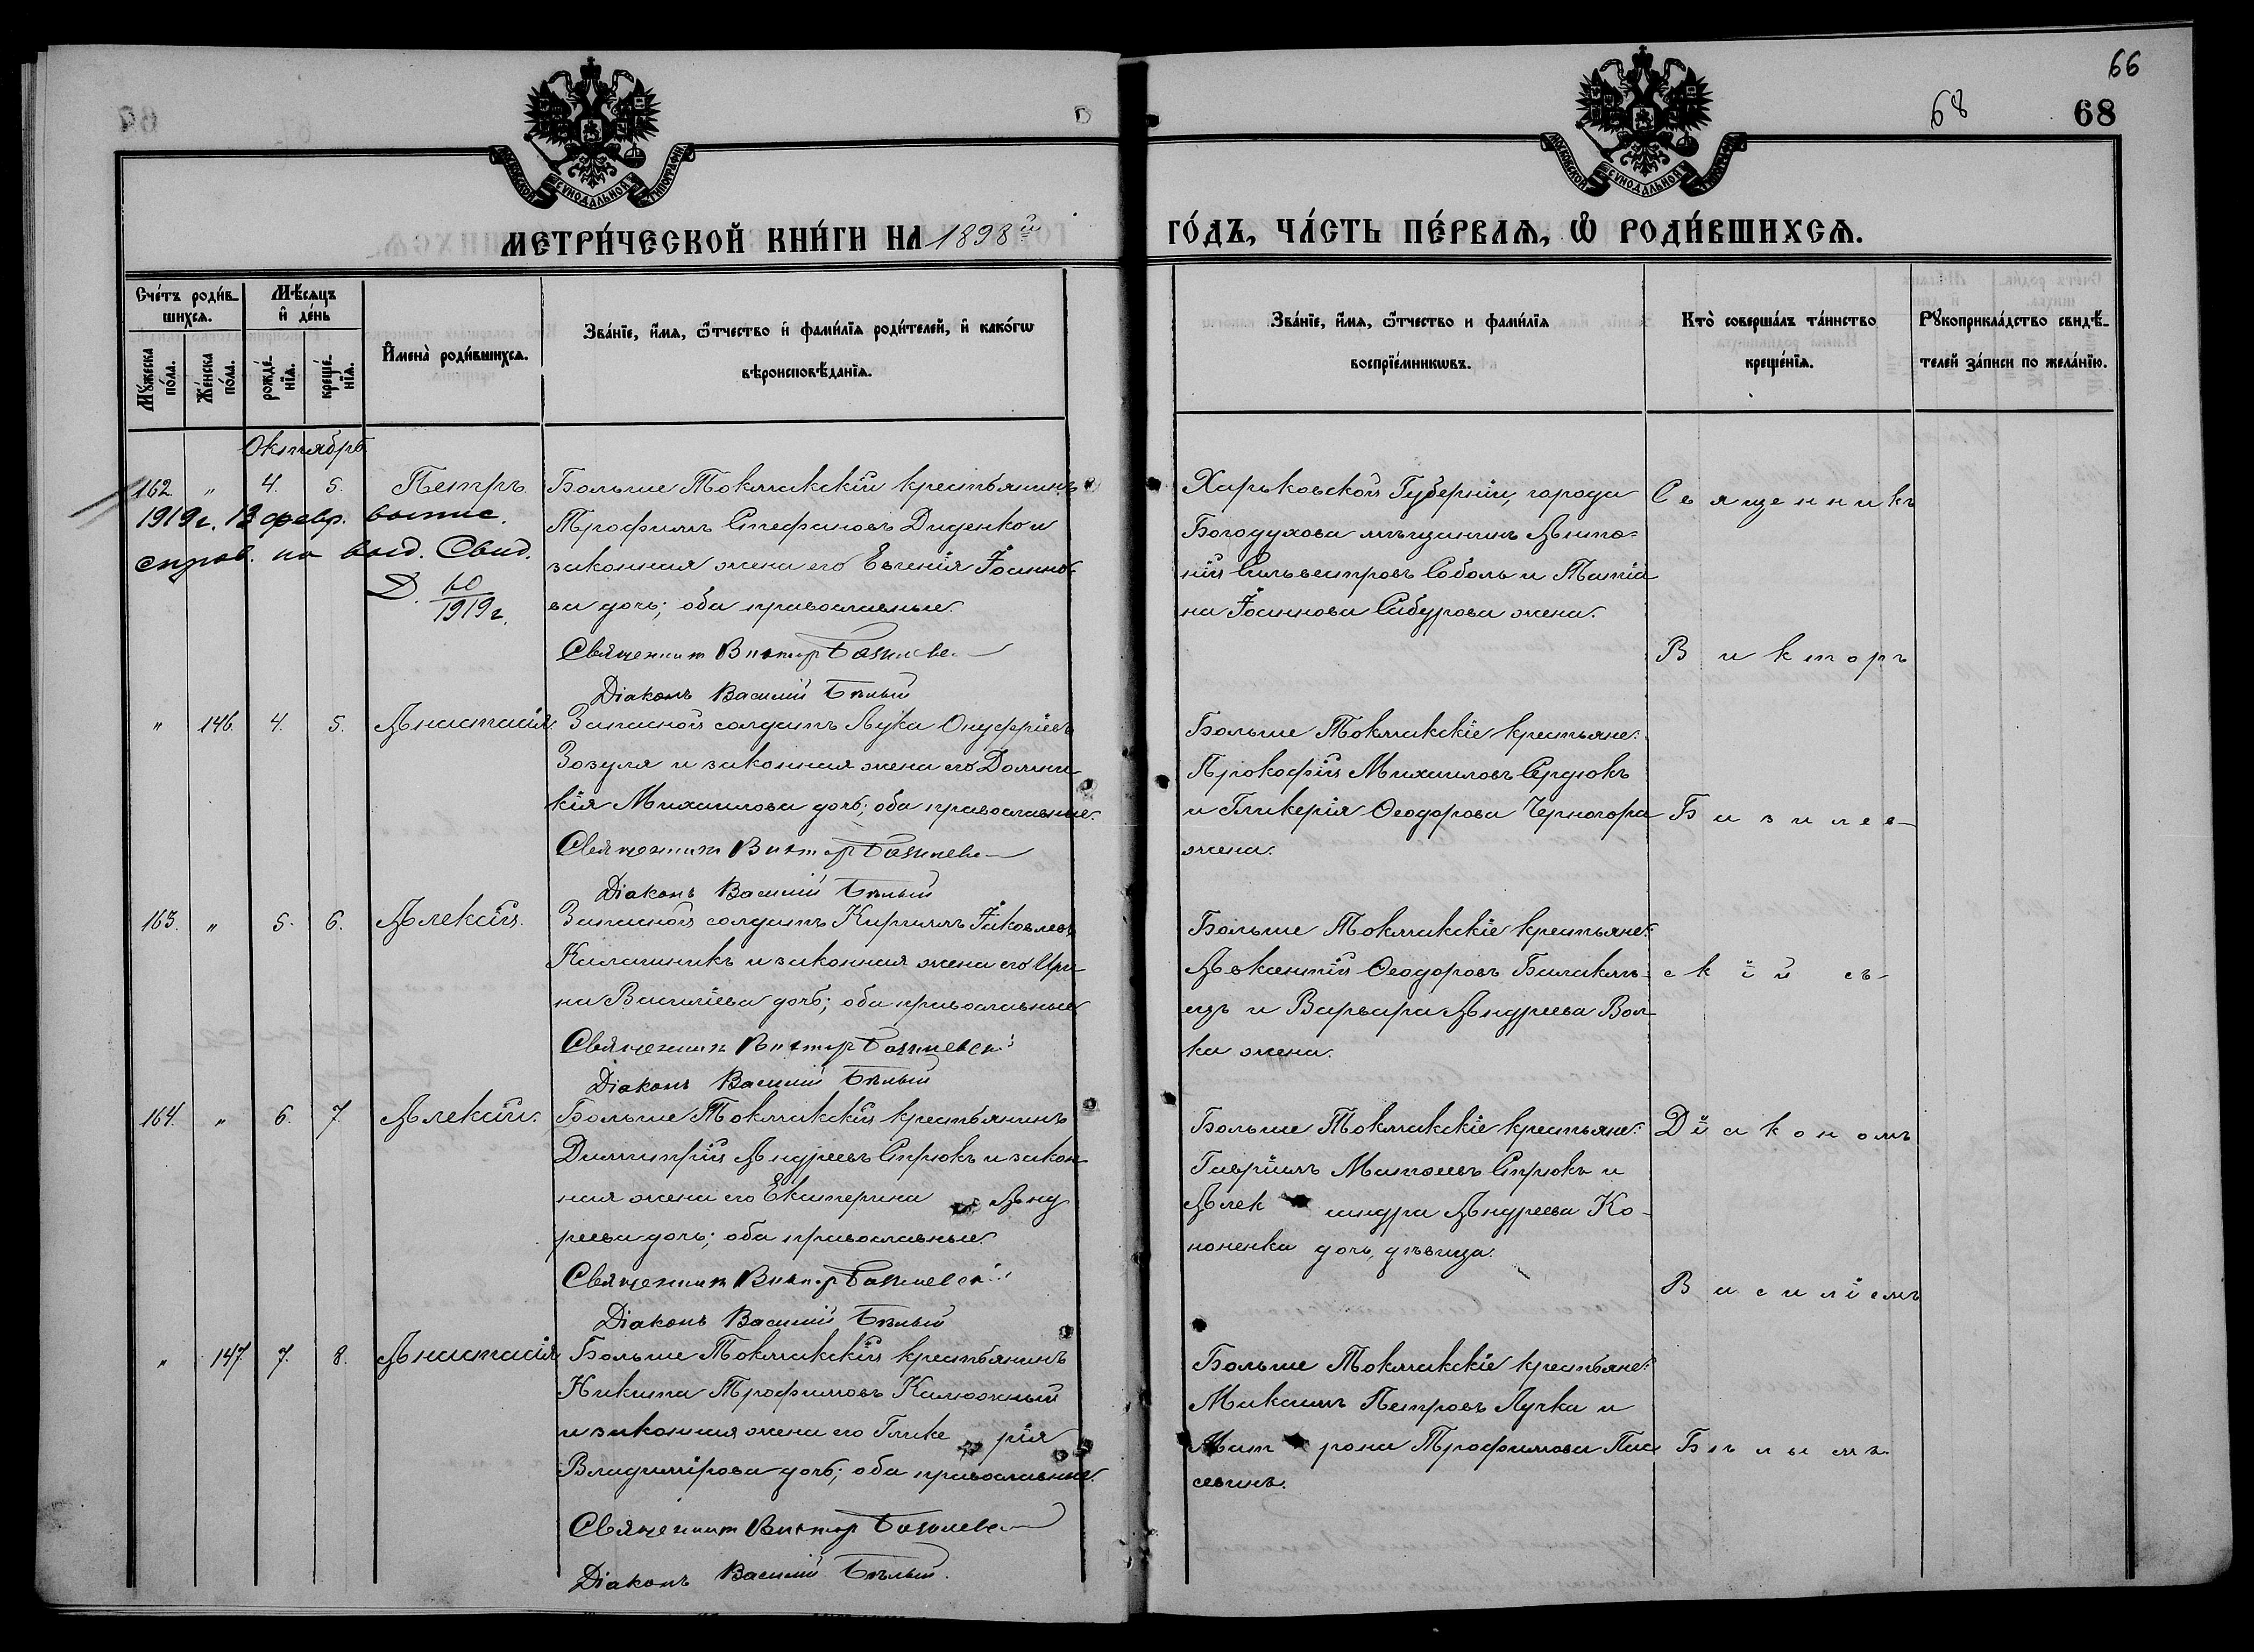 66
68
68
МОСКОВСКОЙ СѴНОДАЛЬНОЙ ТИПОГРАФІИ
МОСКОВСКОЙ СѴНОДАЛЬНОЙ ТИПОГРАФІИ
МЕТРИ́ЧЕСКОЙ КНИ́ГИ НА 1898й
ГО́ДЪ, ЧА́СТЬ ПЕ́РВАѦ, Ѡ РОДИ́ВШИХСѦ.
Сче́тъ роди́в-
шихсѧ.
Мꙋжеска по́ла.
Же́нска по́ла.
Мѣ́сѧцъ
и҆ де́нь
рожде́-
нїѧ.
креще́-
нїѧ.
И҆мена̀ роди́вшихсѧ.
Зва́нїе, и҆́мѧ, ѻ҆́тчество и҆ фами́лїѧ роди́телей, и҆ како́гѡ
вѣроисповѣ́данїѧ.
Зва́нїе, и҆́мѧ, ѻ҆́тчество и фами́лїѧ
воспрїе́мникѡвъ.
Кто̀ соверша́лъ та́инство
креще́нїѧ.
Рꙋкоприкла́дство свидѣ́-
телей за́писи по жела́нїю.
Октябрь
162. " 4. 5. Петръ.
1919 г. 13 февр. выпис.
справ. на выд. Свид.
Д. 10/1919 г.
Больше Токмакскій крестьянинъ
Трофимъ Стефановъ Диденко и
законная жена его Евгенія Іоанно-
ва дочь; оба православные.
Священник Виктор Базилев
Діаконъ Василій Бѣлый
Харьковской Губерніи, города
Богодухова мѣщанинъ Анто-
ній Сильвестровъ Соболь и Татіа
на Іоаннова Сабурова жена.
Священникъ
Викторъ
" 146. 4. 5. Анастасія.
Запасной солдатъ Лука Онуфріевъ
Зозуля и законная жена его Домни-
кія Михаилова дочь; оба православные.
Священник Виктор Базилев
Діаконъ Василій Бѣлый
Больше Токмакскіе крестьяне:
Прокофій Михаиловъ Сердюкъ
и Гликерія Ѳеодорова Черногора
жена.
Базилев-
163. " 5. 6. Алексій.
Запасной солдатъ Кириллъ Іаковлевъ
Калашникъ и законная жена его Ири
на Василіева дочь; оба православные
Священник Виктор Базилевскі
Діаконъ Василій Бѣлый
Больше Токмакскіе крестьяне:
Авксентій Ѳеодоровъ
и Варвара Андреева Вол-
ка жена.
скій съ-
164. " 6. 7. Алексій.
Больше Токмакскій крестьянинъ
Димитрій Андреевъ Стрюкъ и закон
ная жена его Екатерина Анд
реева дочь; оба православные.
Священник Виктор Базилевскі
Діаконъ Василій Бѣлый
Больше Токмакскіе крестьяне:
Гавріилъ Матѳеевъ Стрюкъ и
Александра Андреева Ко-
ноненка дочь, дѣвица.
Діакономъ
Василіемъ
" 147. 7. 8. Анастасія
Больше Токмакскій крестьянинъ
Никита Трофимовъ Калюжный
и законная жена его Глике рія
Владимірова дочь; оба православные.
Священник Виктор Базилев
Діаконъ Василій Бѣлый.
Больше Токмакскіе крестьяне:
Максимъ Петровъ Лучка и
Мат рона Трофимова

Бѣлымъ.